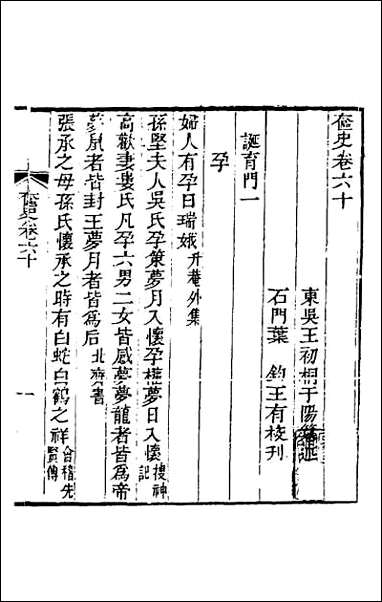 奩史卷六十
東吳王初桐于陽纂述
石門葉鈞王有棱刊
誕育門一
孕
婦人有孕曰瑞娥升庵外集
孫堅夫人吳氏孕策夢月入懷孕權夢日入懷搜神記
高歡妻婁氏凡孕六男二女皆感夢夢龍者皆為帝
夢鼠者皆封王夢月者皆為后北齊書
張承之母孫氏懷承之時有白蛇白鶴之祥會稽先賢傳
奩史卷六十
一